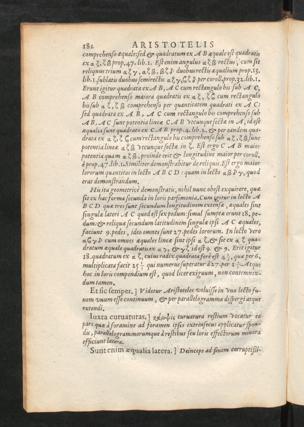 182 ARISTOTELIS
comprehenso æquale: sed & quadratum ex A B æquale est quadratis
ex α ζ, ζ β prop. 47. lib. 1. Est enim angulus α ζ β rectus, cum sit
reliquus trium
lib. 1. sublatis duobus semirectis
Erunt igitur quadrata ex A B, A C cum rectangulo bis sub A C,
A B comprehenso maiora quadratis ex α ζ, ζ β cum rectangulo
bis sub α ζ, ζ β comprehenso per quantitatem quadrati ex A C:
sed quadrata ex A B, A C cum rectangulo bis comprehenso sub
A B, A C sunt potentia linea C A B
æqualia sunt quadrato ex C A B prop. 4. lib. 2. & per eandem qua-
drata ex α ζ, ζ β cum rectangulo bis comprehenso sub α ζ, ζ β sunt
potentia lineæ α ζ β Est ergo C A B maior
potentia quam α ζ β, proinde erit & longitudine maior
prop. 47. lib. 1. similiter demonstrabitur de reliquis. Est ergo maior
lororum quantitas in lecto A B C D : quam in lecto α β γ, quod
erat demonstrandum.
His ita geometricè demonstratis, nihil nunc obest exquirere, qua
sit ex hac forma secundis in loris parsimonia. Cum igitur in lecto A
B C D qua tres sunt secundum longitudinem extensæ, æquales sint
singula lateri A C quod est sex pedum: simul sumptæ erunt 18. pe-
dum. & reliquæ secundum latitudinem singulæ ipsi A C æquales,
faciunt 9. pedes, ideo omnes sunt 27. pedes lororum. In lecto vero
cum omnes æquales lineæ sint ipsi α ζ & sit ex α ζ qua-
dratum æquale quadratis ex id est 9. & 9. Erit igitur
18. quadratum ex α ζ, cuius radix quadrata ferè est per 6.
multiplicata facit 25 qui numerus superatur à 27. per Atque
hoc in loris compendium est, quod licet exiguum, non contemnen-
dum tamen.
Et sic semper, ] Videtur Aristoteles voluisse in uno lecto fu-
nem unum esse continuum, & per parallelogramma disrergi atque
extendi,
Iuxta curuaturas, ] curuatura restium vocatur ea
pars qua à foramine ad foramen ipsis extrinsecus applicatur spon-
dis, parallelogrammorumque à restibus seu loris effectorum minora
efficiunt latera.
Sunt enim æqualia latera. ] Deinceps ad finem